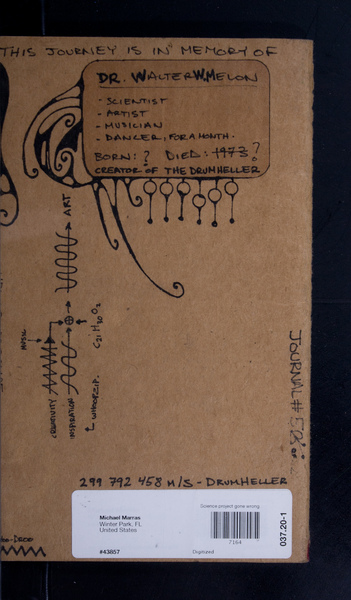 THIS JOURNEY IS IN MEMORY OF
DR. WALTER W. MELON
- SCIENTIST
- ARTIST
- MUSICIAN
- DANCER, FOR A MONTH.
BORN: ? DIED: 1973?
CREATOR OF THE DRUMHELLER
ART
MUSIC
C21 H30 O2
CREATIVITY
INSPIRATION
JOURNAL #
299 792 458 M/S - DRUMHELLER
Science project gone wrong
Michael Marras
Winter Park, FL
United States
7164
#43857
Digitized
037.20-1
DECO